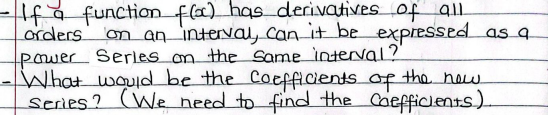 - If a function f(x) has derivatives of all
orders on an interval, can it be expressed as a
power series on the same interval?
- What would be the coefficients of the new
series? (We need to find the coefficients).